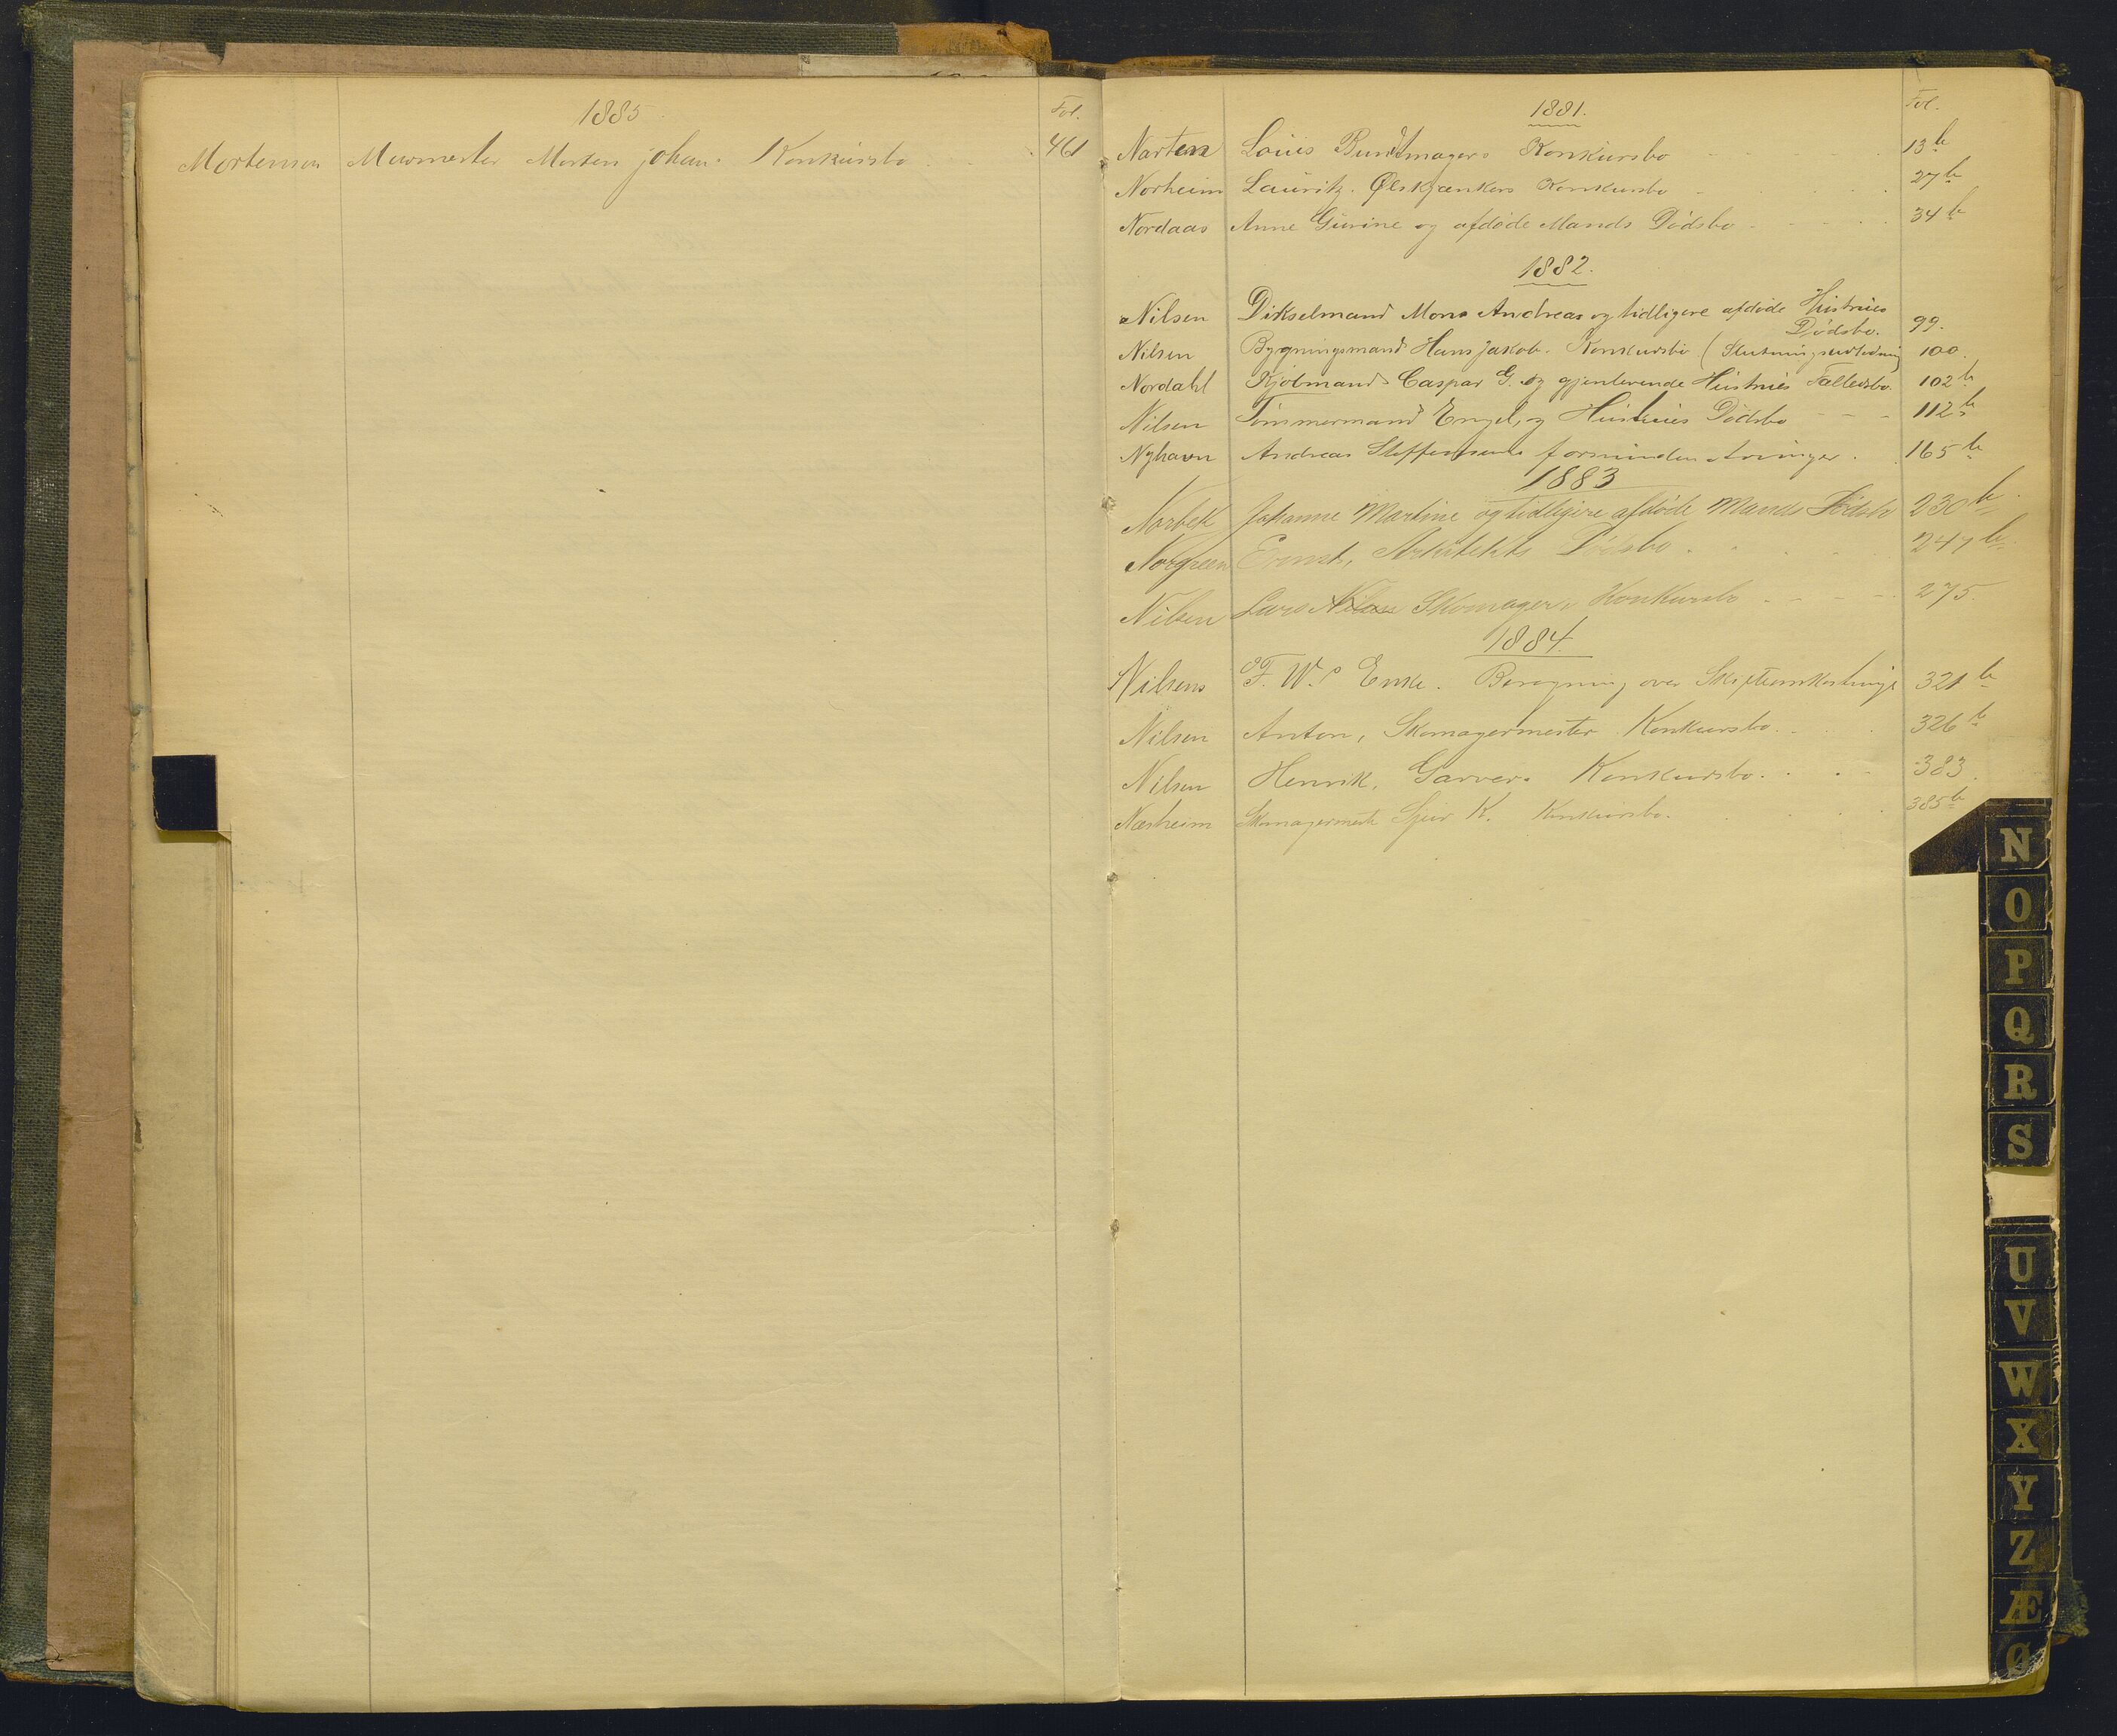 1885
Fol.
Mortensen Murmester Morten Johans Konkursbo 461
1881.
Fol.
Narten Louis Buntmagers Konkursbo 13b
Norheim Lauritz Ølskjænkers Konkursbo 27b
Nordaas Anne Gurine og afdøde Mands Dødsbo 34b
1882.
Nilsen Dikselmand Mons Andreas og tidligere afdøde Hustrues
Dødsbo. 99.
Nilsen Bygningsmand Hans Jakob. Konkursbo (Slutningsudlodning 100.
Nordahl Kjøbmand Caspar G. og gjenlevende Hustrues Fællesbo. 102b
Nilsen Tømmermand Engel, og Hustrues Dødsbo 112b
Nyhavn Andreas Steffensens Arvinger. 165b
1883
Norbek Johanne Martine og tidligere afdøde Mands Dødsbo 230b
Norgreen Ernst, Arkitekts Dødsbo 247b
Nilsen Lars Nilsen Skomagers Konkursbo 275.
1884.
Nilsens F. W.s Enke. Beregning over Skifteomkostninger 321b
Nilsen Anton, Skomagermester Konkursbo. 326b
Nilsen Henrik, Garvers Konkursbo. 383.
Næsheim Skomagermest. Sjur K. Konkursbo. 385b
N
O
P
Q
R
S
U
V
W
X
Y
Z
Æ
Ø